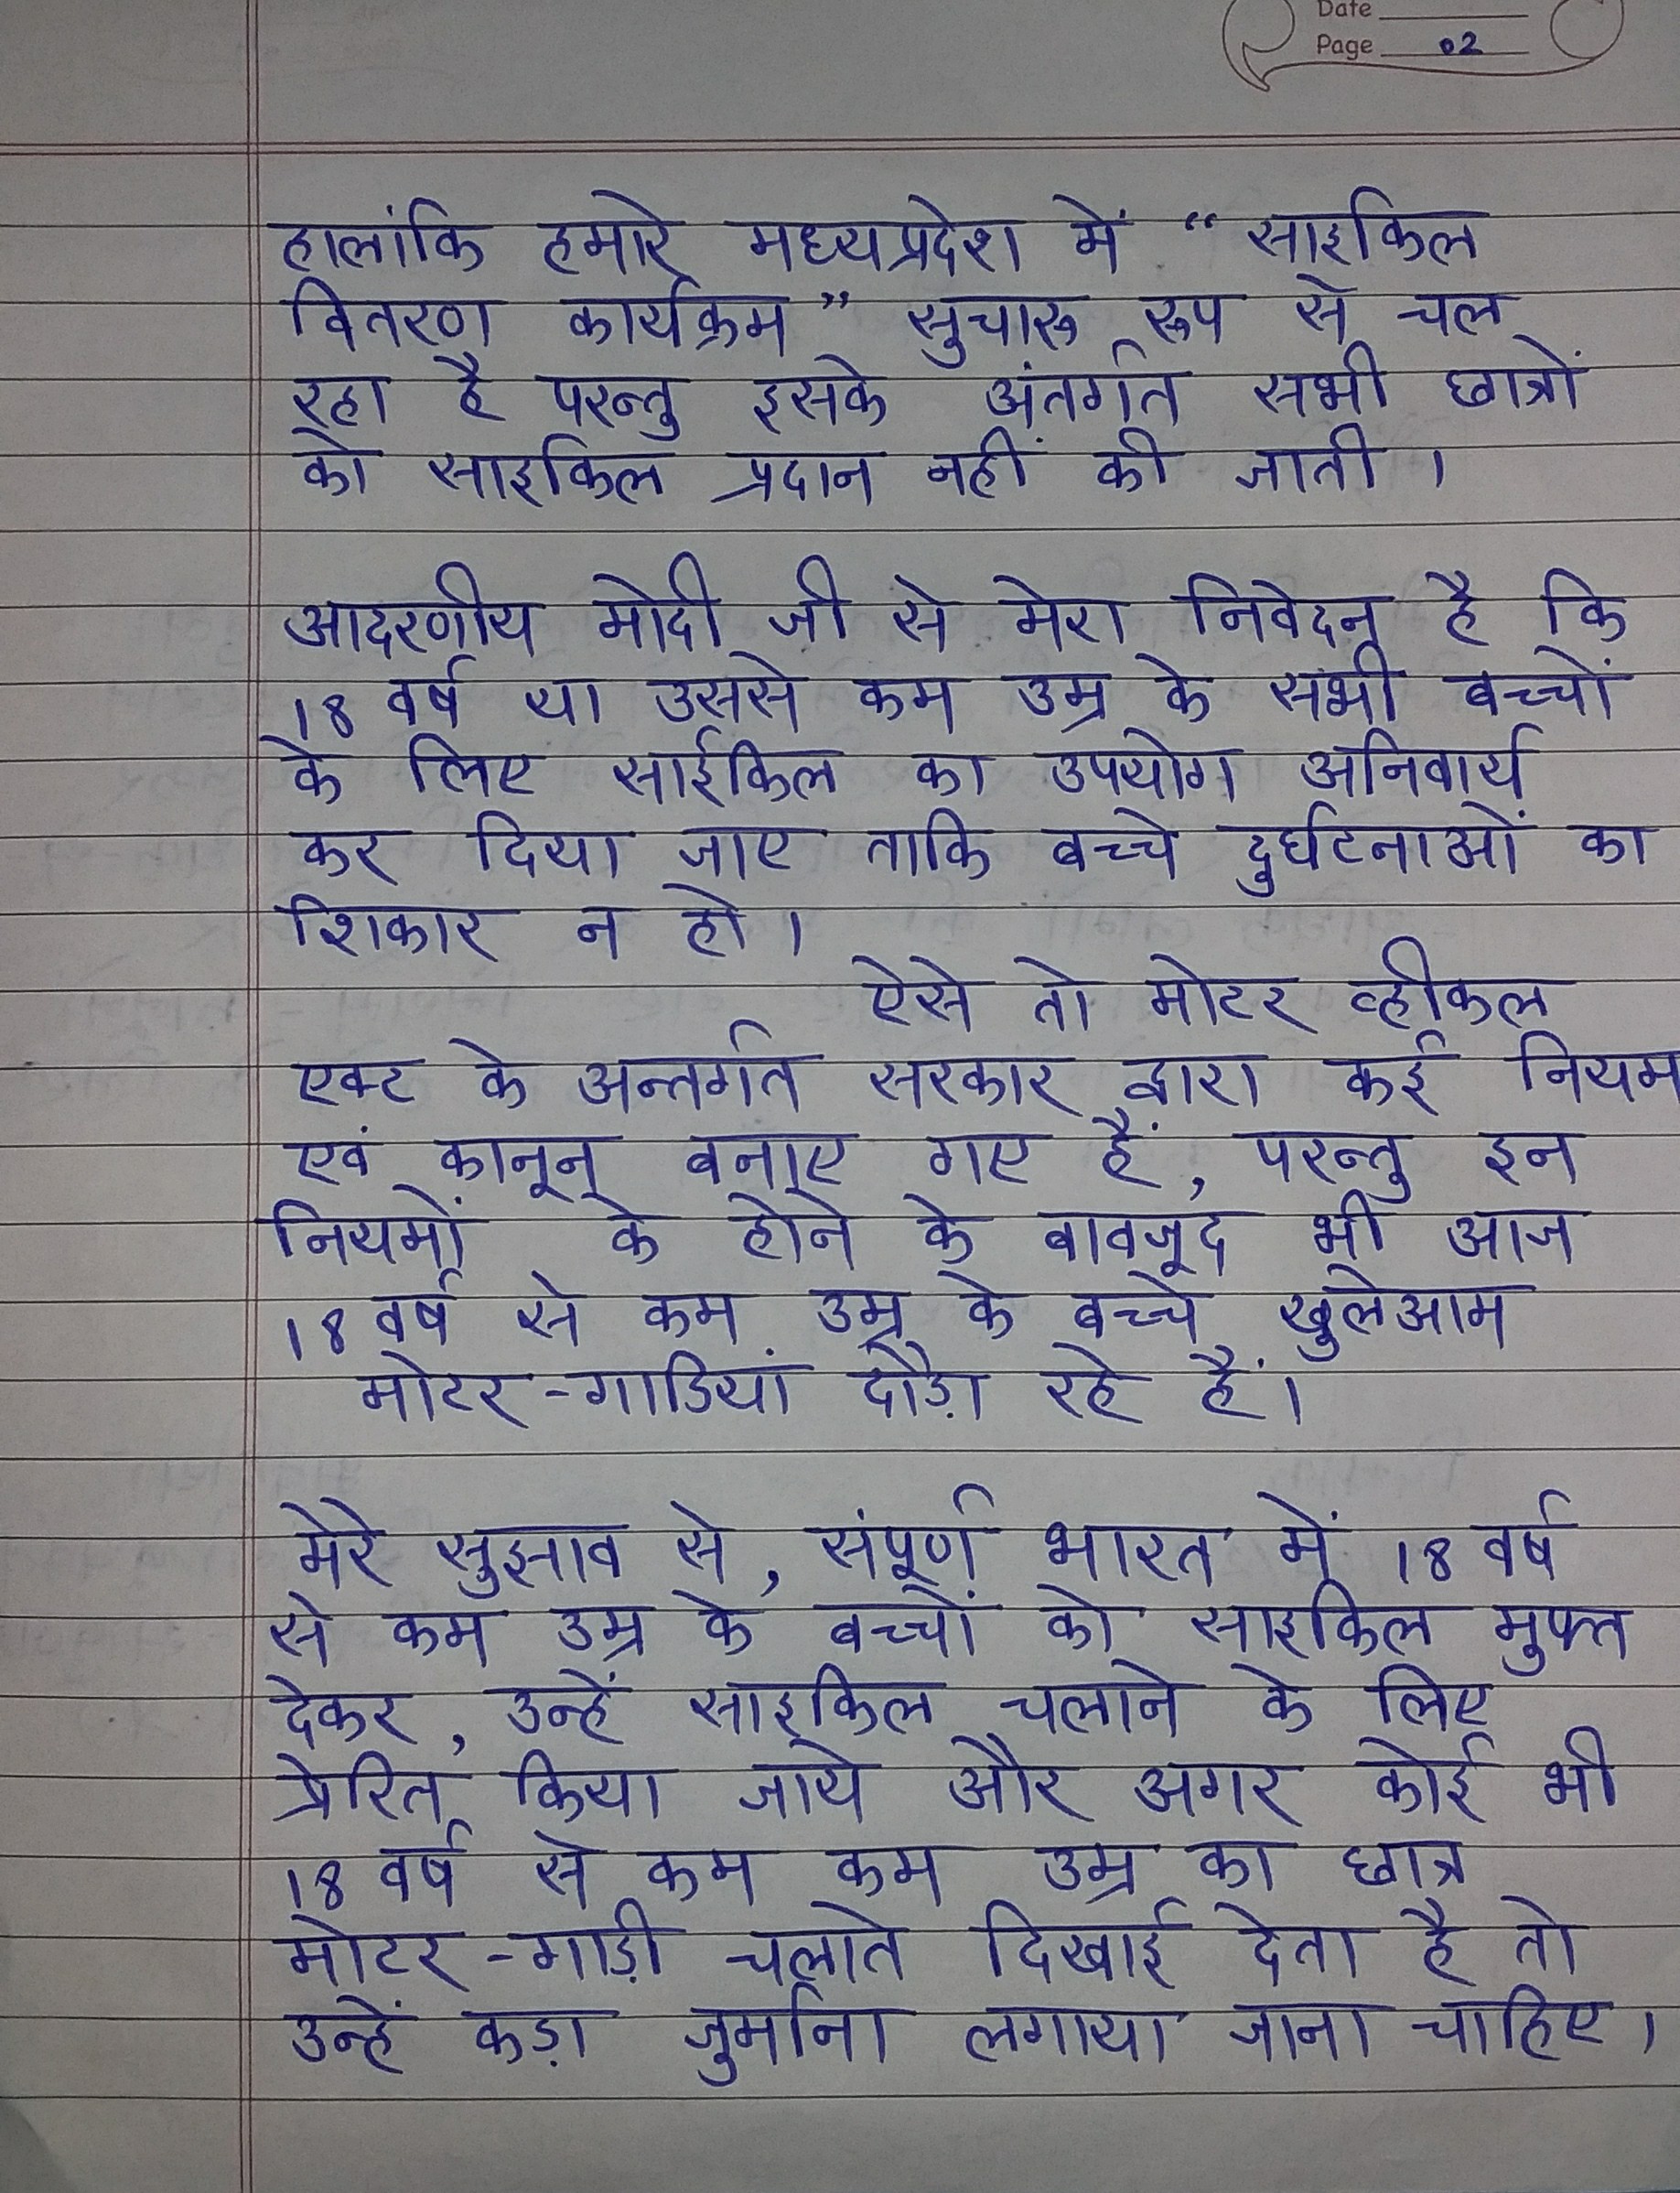 Date
Page 02
हालांकि हमारे मध्यप्रदेश में “ साइकिल
वितरण कार्यक्रम ” सुचारू रूप से चल
रहा है परन्तु इसके अंतर्गत सभी छात्रों
को साइकिल प्रदान नहीं की जाती ।
आदरणीय मोदी जी से मेरा निवेदन है कि
18 वर्ष या उससे कम उम्र के सभी बच्चों
के लिए साईकिल का उपयोग अनिवार्य
कर दिया जाए ताकि बच्चे दुर्घटनाओं का
शिकार न हो ।
ऐसे तो मोटर व्हीकल
एक्ट के अन्तर्गत सरकार द्वारा कई नियम
एवं कानून बनाए गए हैं, परन्तु इन
नियमों के होने के बावजूद भी आज
18 वर्ष से कम उम्र के बच्चे खुलेआम
मोटर-गाडियां दौड़ा रहे हैं।
मेरे सुझाव से, संपूर्ण भारत में 18 वर्ष
से कम उम्र के बच्चों को साइकिल मुफ्त
देकर, उन्हें साइकिल चलाने के लिए
प्रेरित किया जाये और अगर कोई भी
18 वर्ष से कम कम उम्र का छात्र
मोटर-गाड़ी चलाते दिखाई देता है तो
उन्हें कड़ा जुर्माना लगाया जाना चाहिए।